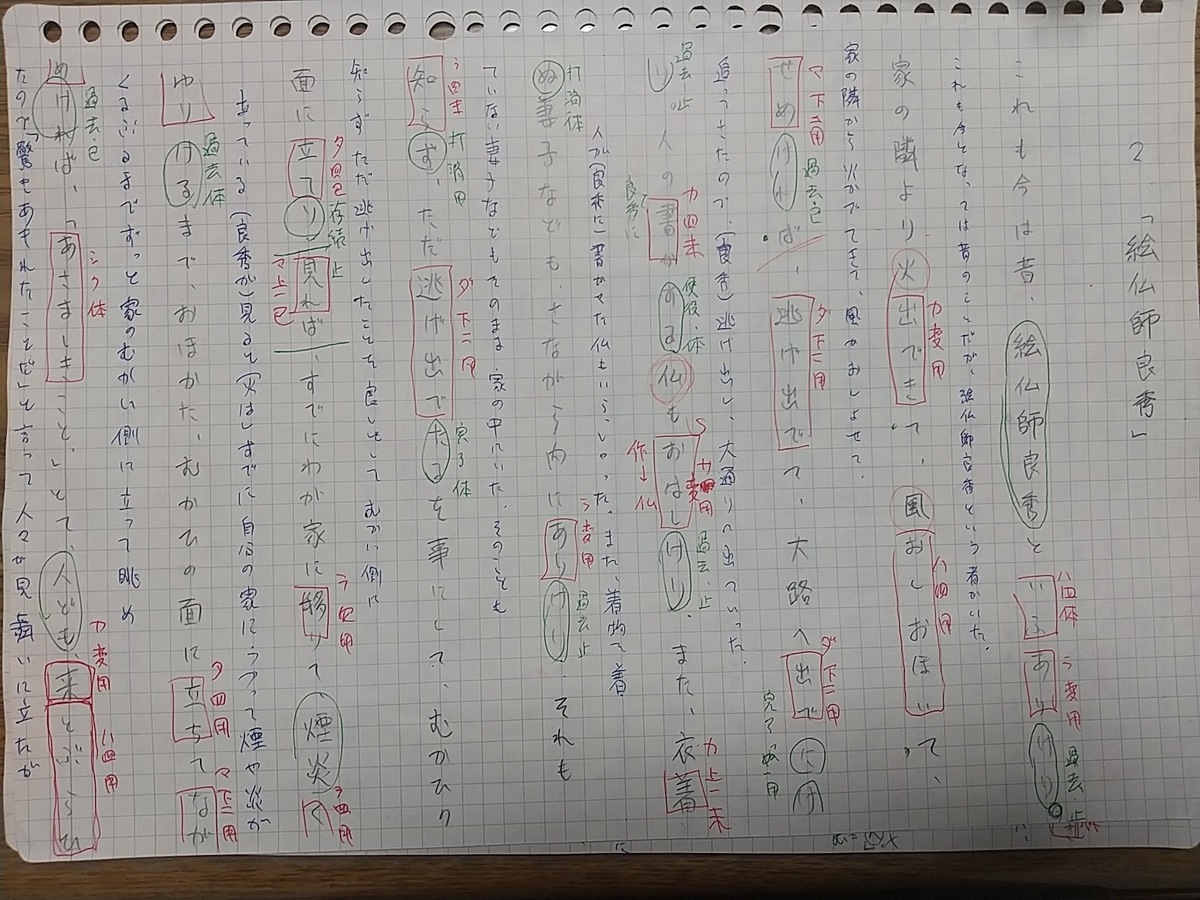 2 「絵仏師良秀」
これも今は昔、絵仏師良秀といふありけり。
ハ四体 ラ変用 過去・止
これも今となっては昔のことだが、絵仏師良秀という者がいた。
家の隣より火出できて、風おしおほいて、
カ変用 ハ四用
家の隣から火がでてきて、風がおしよせて、
せめければ、逃げ出でて、大路へ出でにけ
マ下二用 過去・已 ダ下二用 ダ下二用 完了
追ってきたので、(良秀)逃げ出して、大通りへ出ていった。
り 人の書かする仏もおはしけり。また、衣着
過去・止 カ四未 使役・体 過去・止 カ上一未
良秀に 作→仏
人が(良秀に)書かせた仏もいらっしゃった。また、着物で着
ぬ妻子なども、さながら内にありけり。それも
打消体 ラ変用 過去・止
ていない妻子などもそのまま家の中にいた。そのことも
知らず、ただ逃げ出でたるを事にして、むかひの
ラ四未 打消用 ダ下二用 完了体
知らずただ逃げ出したことを良しとして むかい側に
面に立てり。見れば、すでにわが家に移りて、煙炎く
タ四已 存続止 マ上一已 ラ四用 ラ四用
立っている。(良秀が)見ると(火は)すでに自分の家にうつって煙や炎が
ゆりけるまで、おほかた、むかひの面に立ちてなが
過去体 タ四用 マ下二用
くるぶるまでずっと家のむかい側に立って眺め
めければ、「あさましきこと。」とて、人ども、来とぶらひ
過去已 シク体 カ変用 ハ四用
たので「驚きあきれたことだ」と言って人々が見舞いに立たが